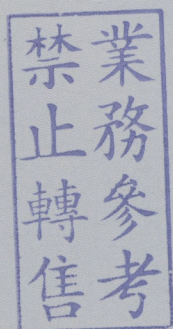 業務參考
禁止轉售